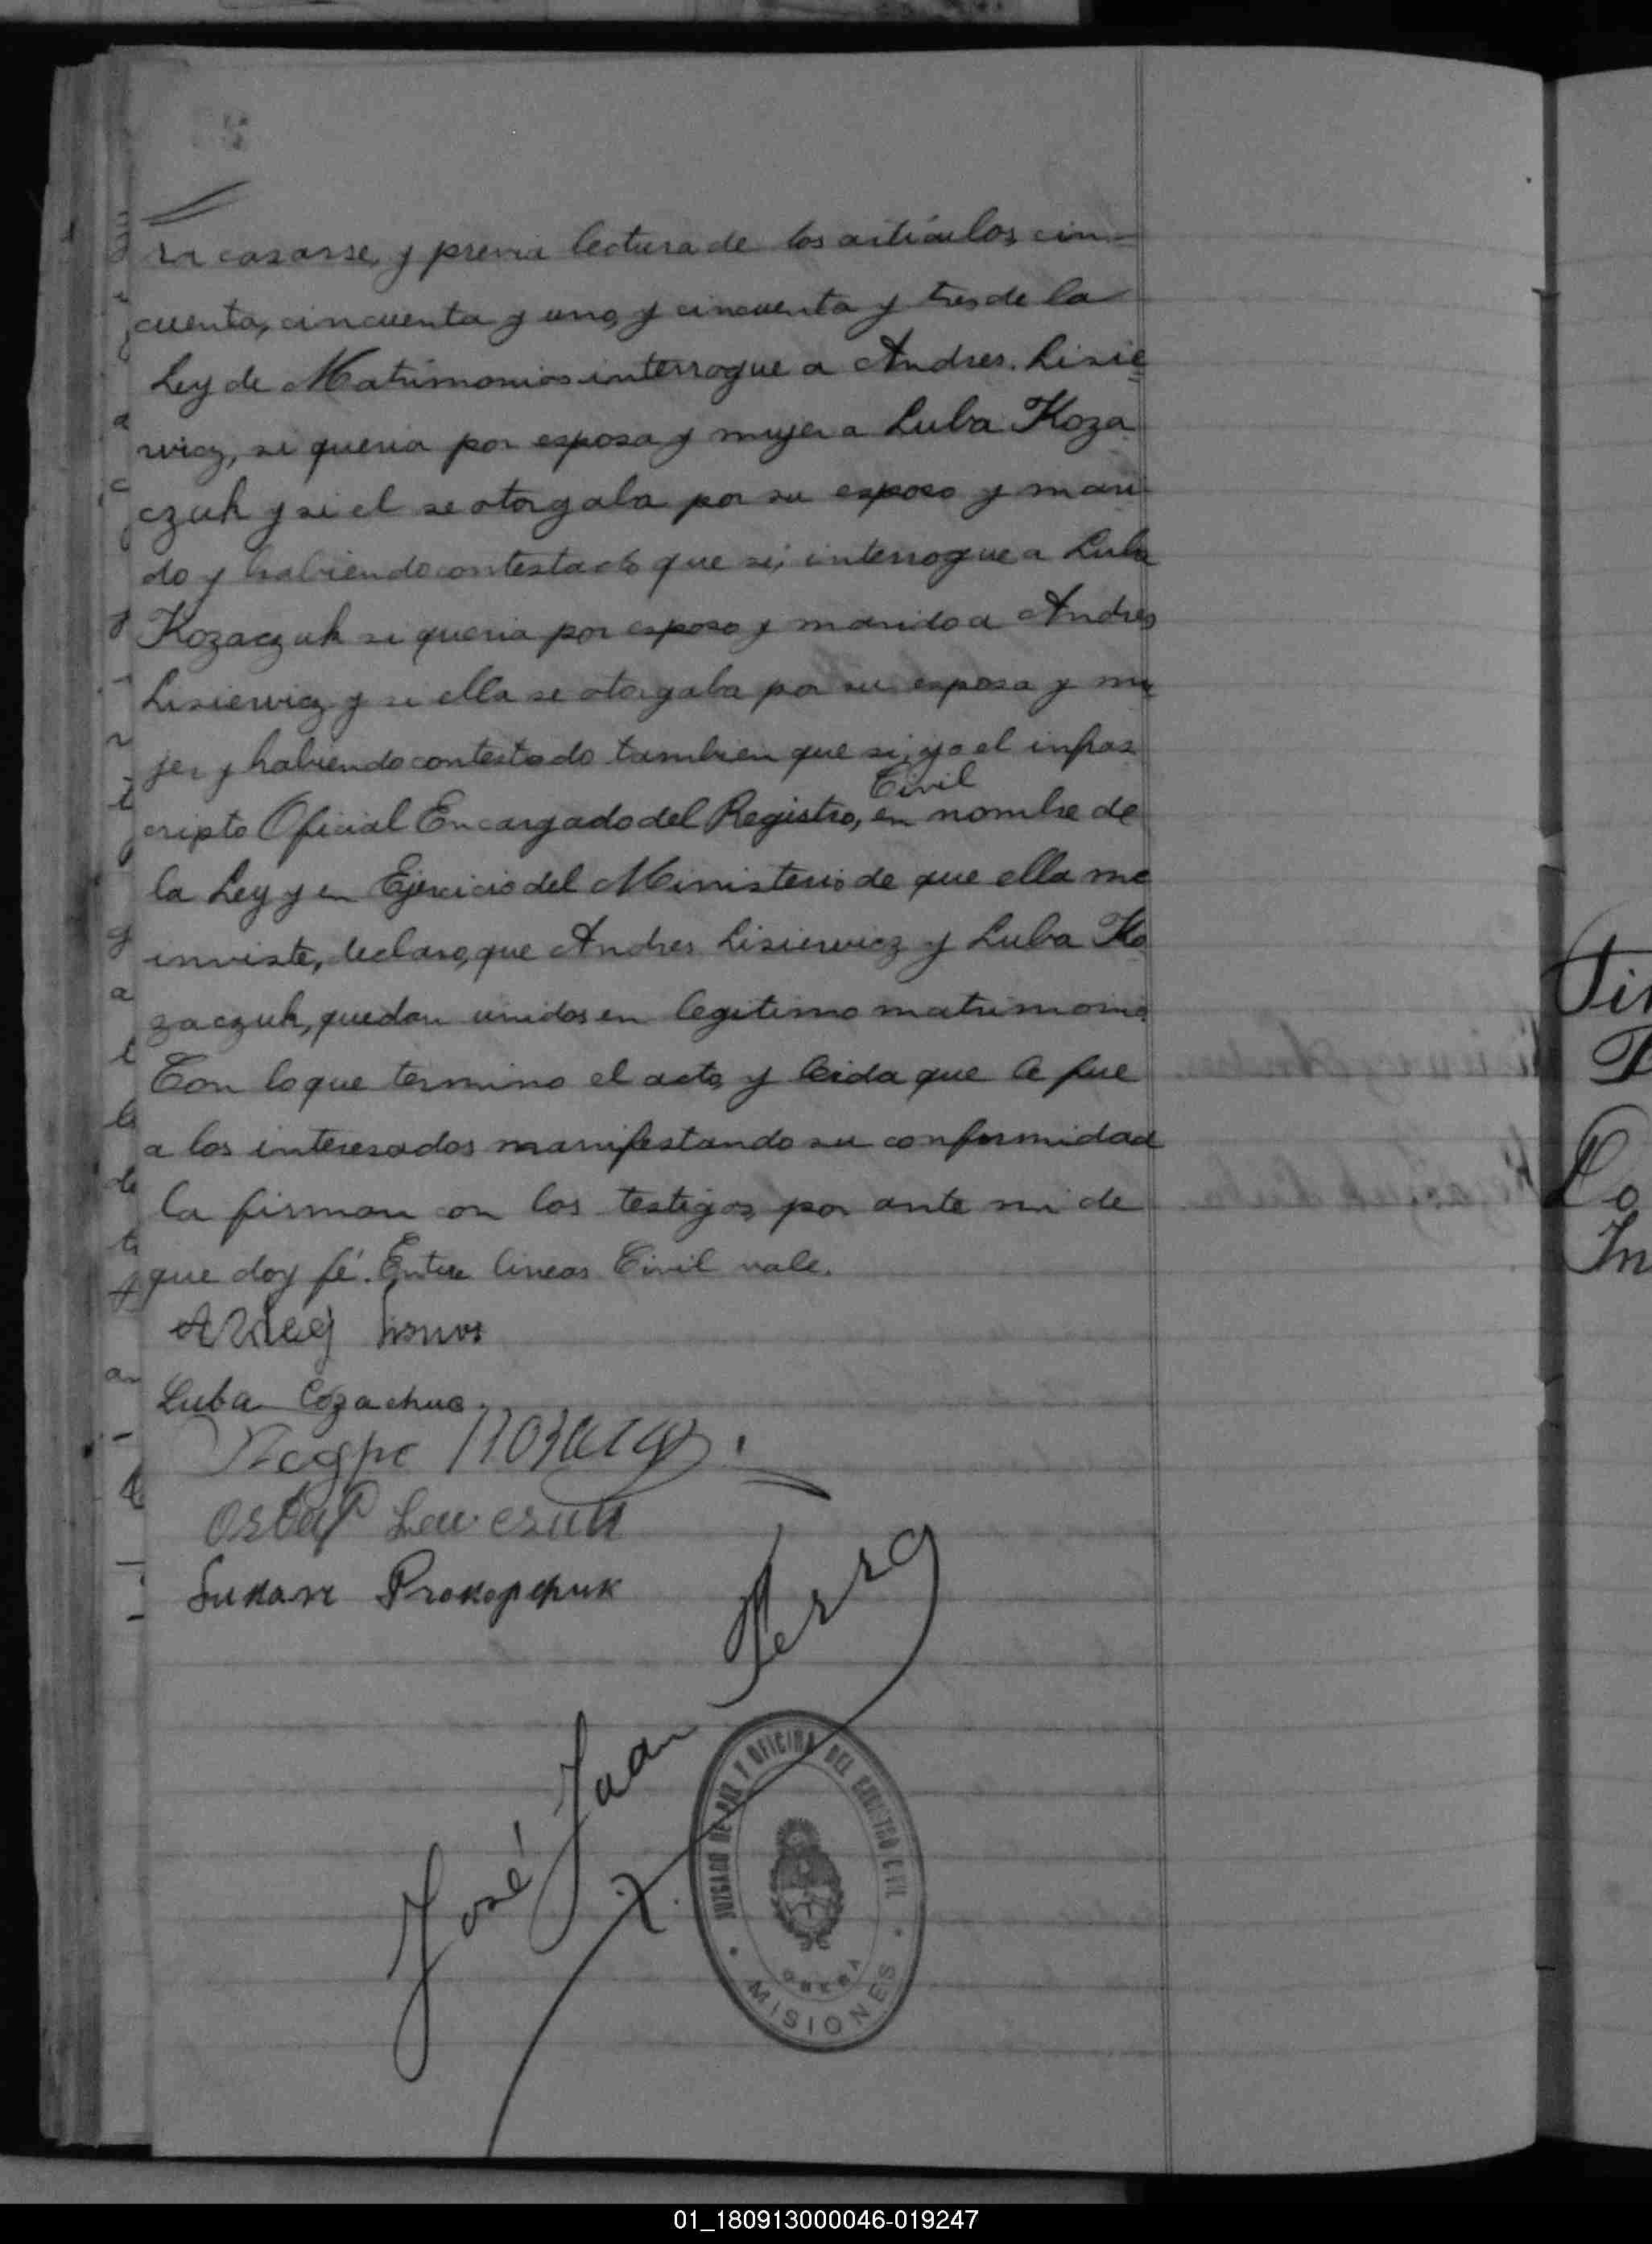 ra casarse, y previa lectura de los articulos cin-
cuenta, cincuenta y uno, y cincuenta y tres de la
Ley de Matrimonios interrogue a Andres Lisie
wicz, si queria por esposa y mujer a Luba Koza
czuk y si el se otorgaba por su esposo y mari
do y habiendo contestado que si, interrogue a Luba
Kozaczuk si queria por esposo y marido a Andres
Lisiewicz y si ella se otorgaba por su esposa y mu
jer y habiendo contestado tambien que si, yo el infras
Civil
cripto Oficial Encargado del Registro, en nombre de
la Ley y en Ejercicio del Ministerio de que ella me
inviste, declaro, que Andres Lisiewicz y Luba Ko
zaczuk, quedan unidos en legitimo matrimonio.
Con lo que termino el acto, y leida que le fue
a los interesados manifestando su conformidad
la firman con los testigos, por ante mi de
que doy fé. Entre lineas Civil vale.
Luba Cozachuc
Ostap
Prokopchuk
José Juan Perz
JUZGADO DE PAZ Y OFICINA DEL REGISTRO CIVIL
OBERA
MISIONES
Lo
In
01_180913000046-019247